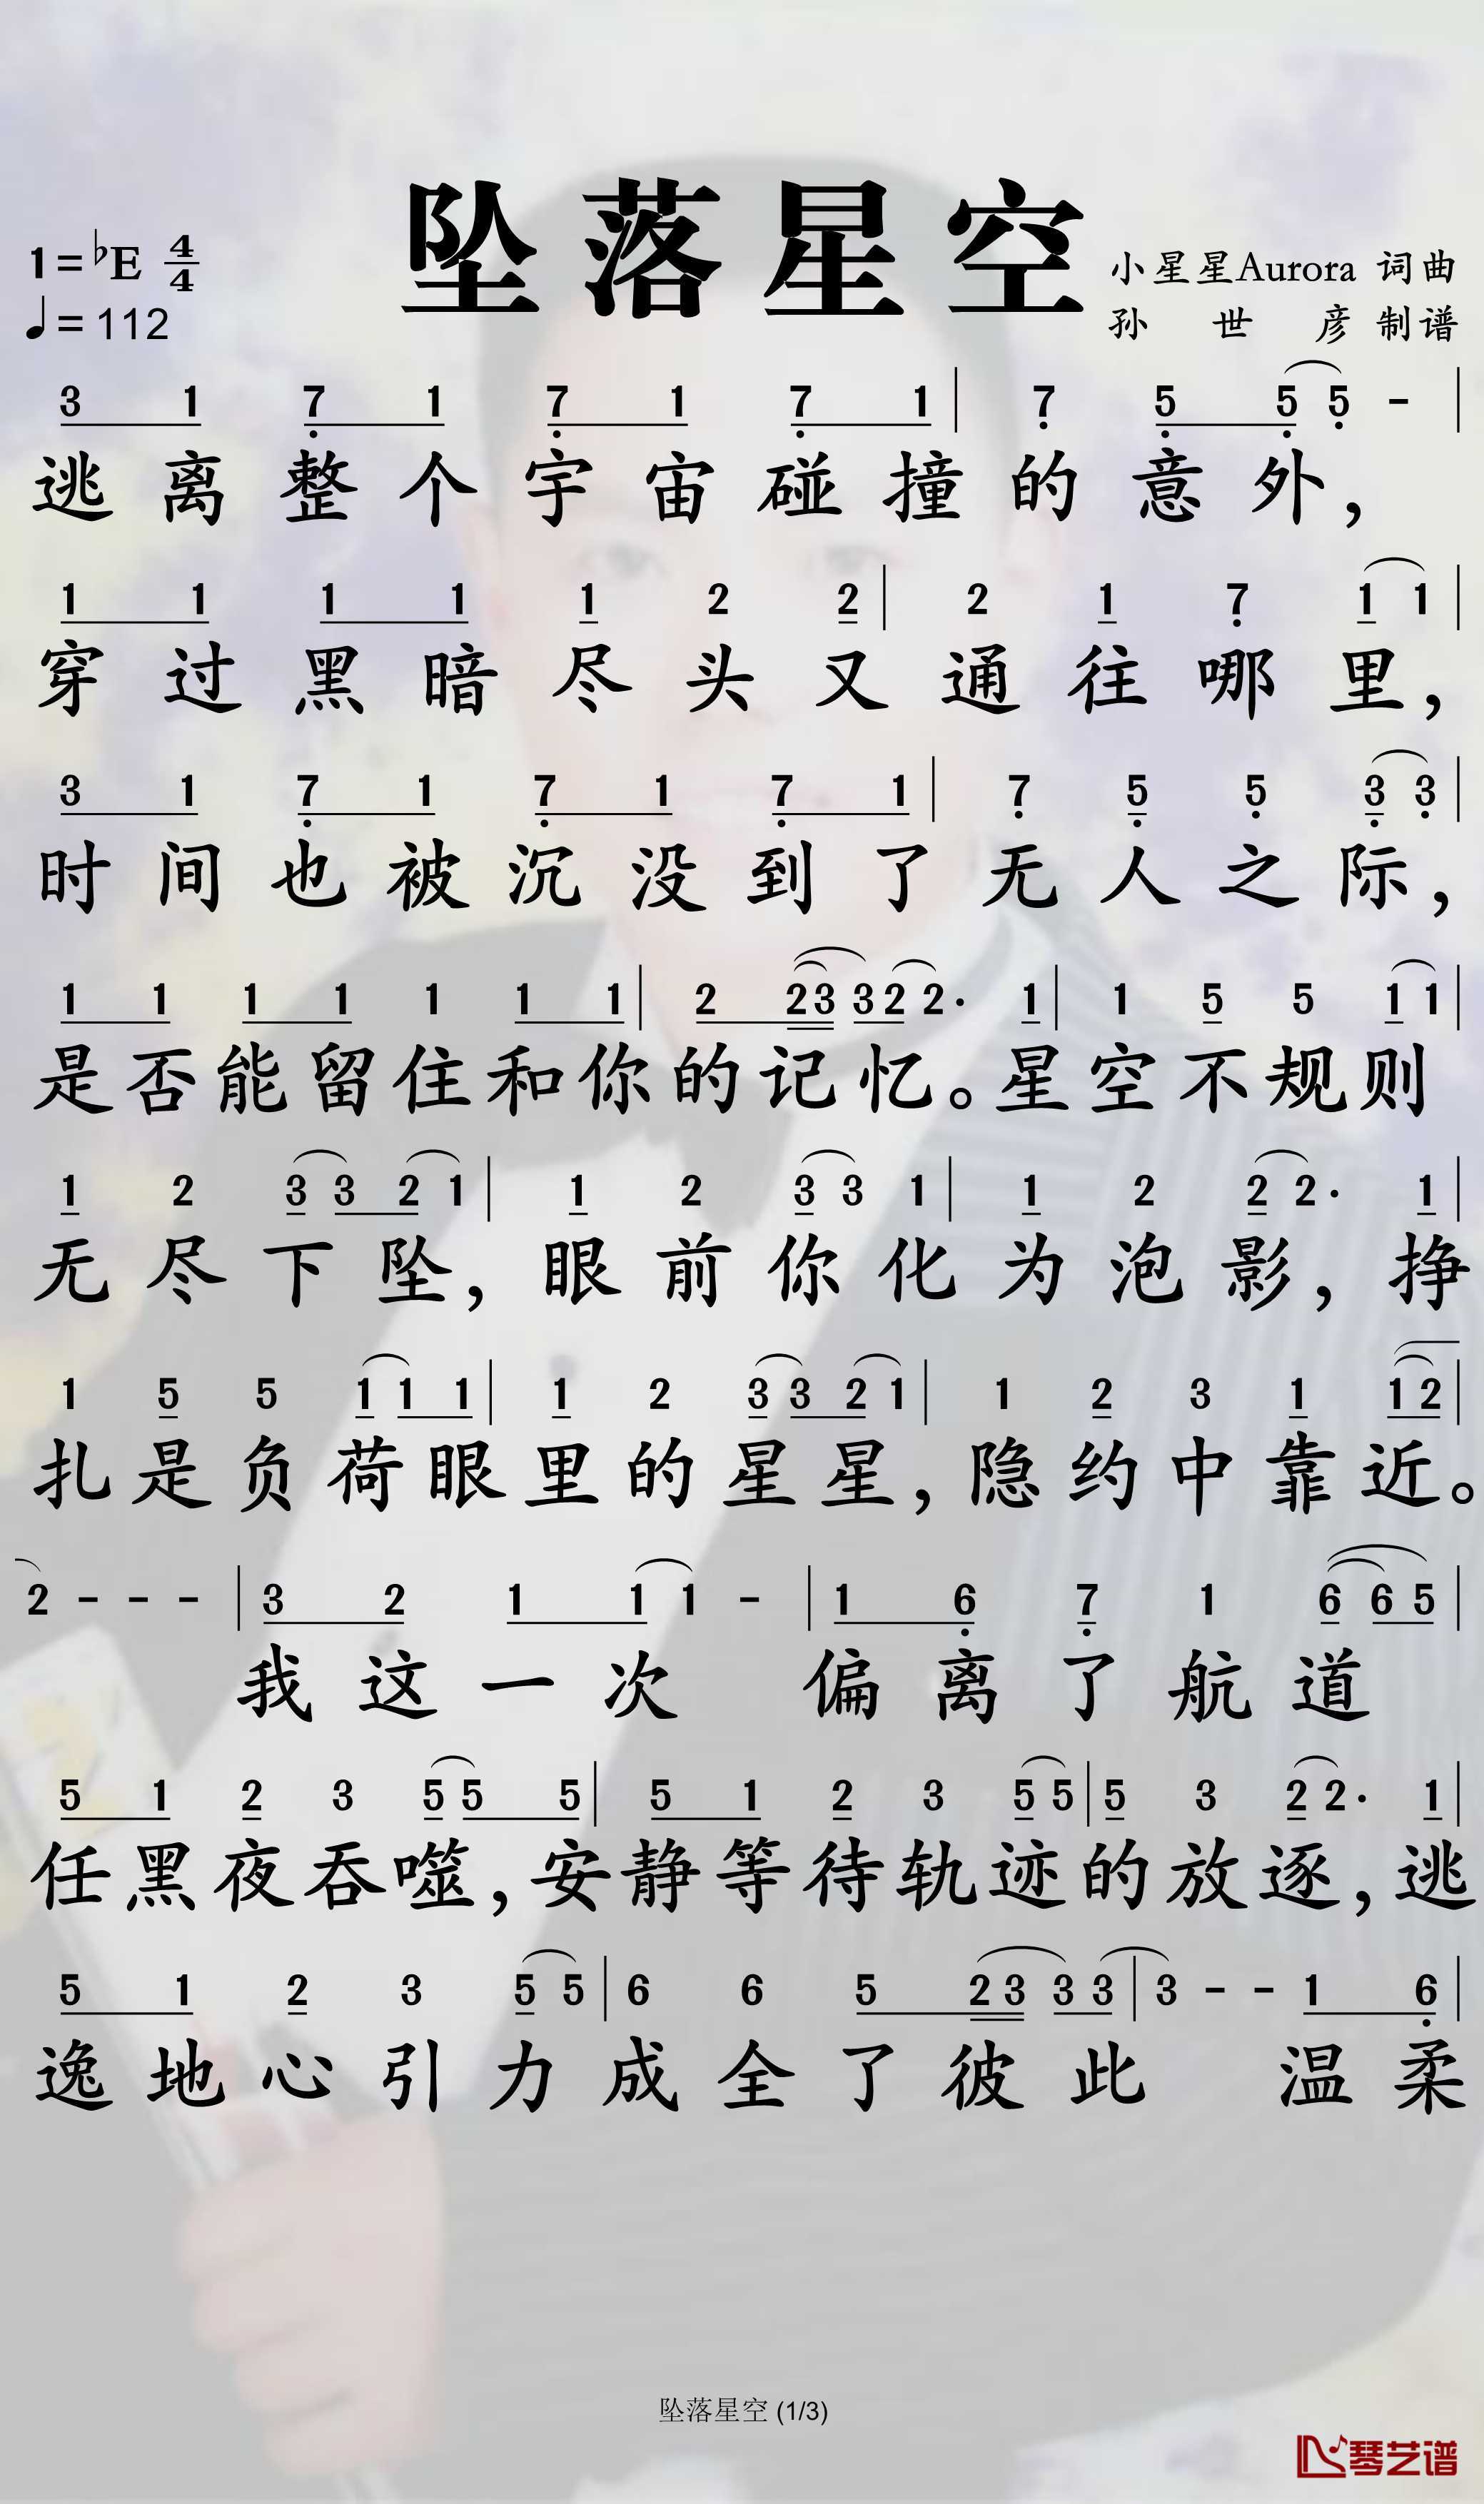 坠落星空
1=♭E 4/4
♩=112
小星星Aurora 词曲
孙世彦 制谱
3 1 7 1 7 1 7 1 | 7 5 5 5 - |
逃离整个宇宙碰撞的意外,
1 1 1 1 1 2 2 | 2 1 7 1 1 |
穿过黑暗尽头又通往哪里,
3 1 7 1 7 1 7 1 | 7 5 5 3 3 |
时间也被沉没到了无人之际,
1 1 1 1 1 1 1 | 2 2 3 3 2 2 · 1 | 1 5 5 1 1 |
是否能留住和你的记忆。星空不规则
1 2 3 3 2 1 | 1 2 3 3 1 | 1 2 2 2 · 1 |
无尽下坠,眼前你化为泡影,挣
1 5 5 1 1 1 | 1 2 3 3 2 1 | 1 2 3 1 1 2 |
扎是负荷眼里的星星,隐约中靠近。
2 - - - | 3 2 1 1 1 - | 1 6 7 1 6 6 5 |
我这一次 偏离了航道
5 1 2 3 5 5 5 | 5 1 2 3 5 5 | 5 3 2 2 · 1 |
任黑夜吞噬,安静等待轨迹的放逐,逃
5 1 2 3 5 5 | 6 6 5 2 3 3 3 | 3 - - 1 6 |
逸地心引力成全了彼此 温柔
坠落星空 (1/3)
琴艺谱